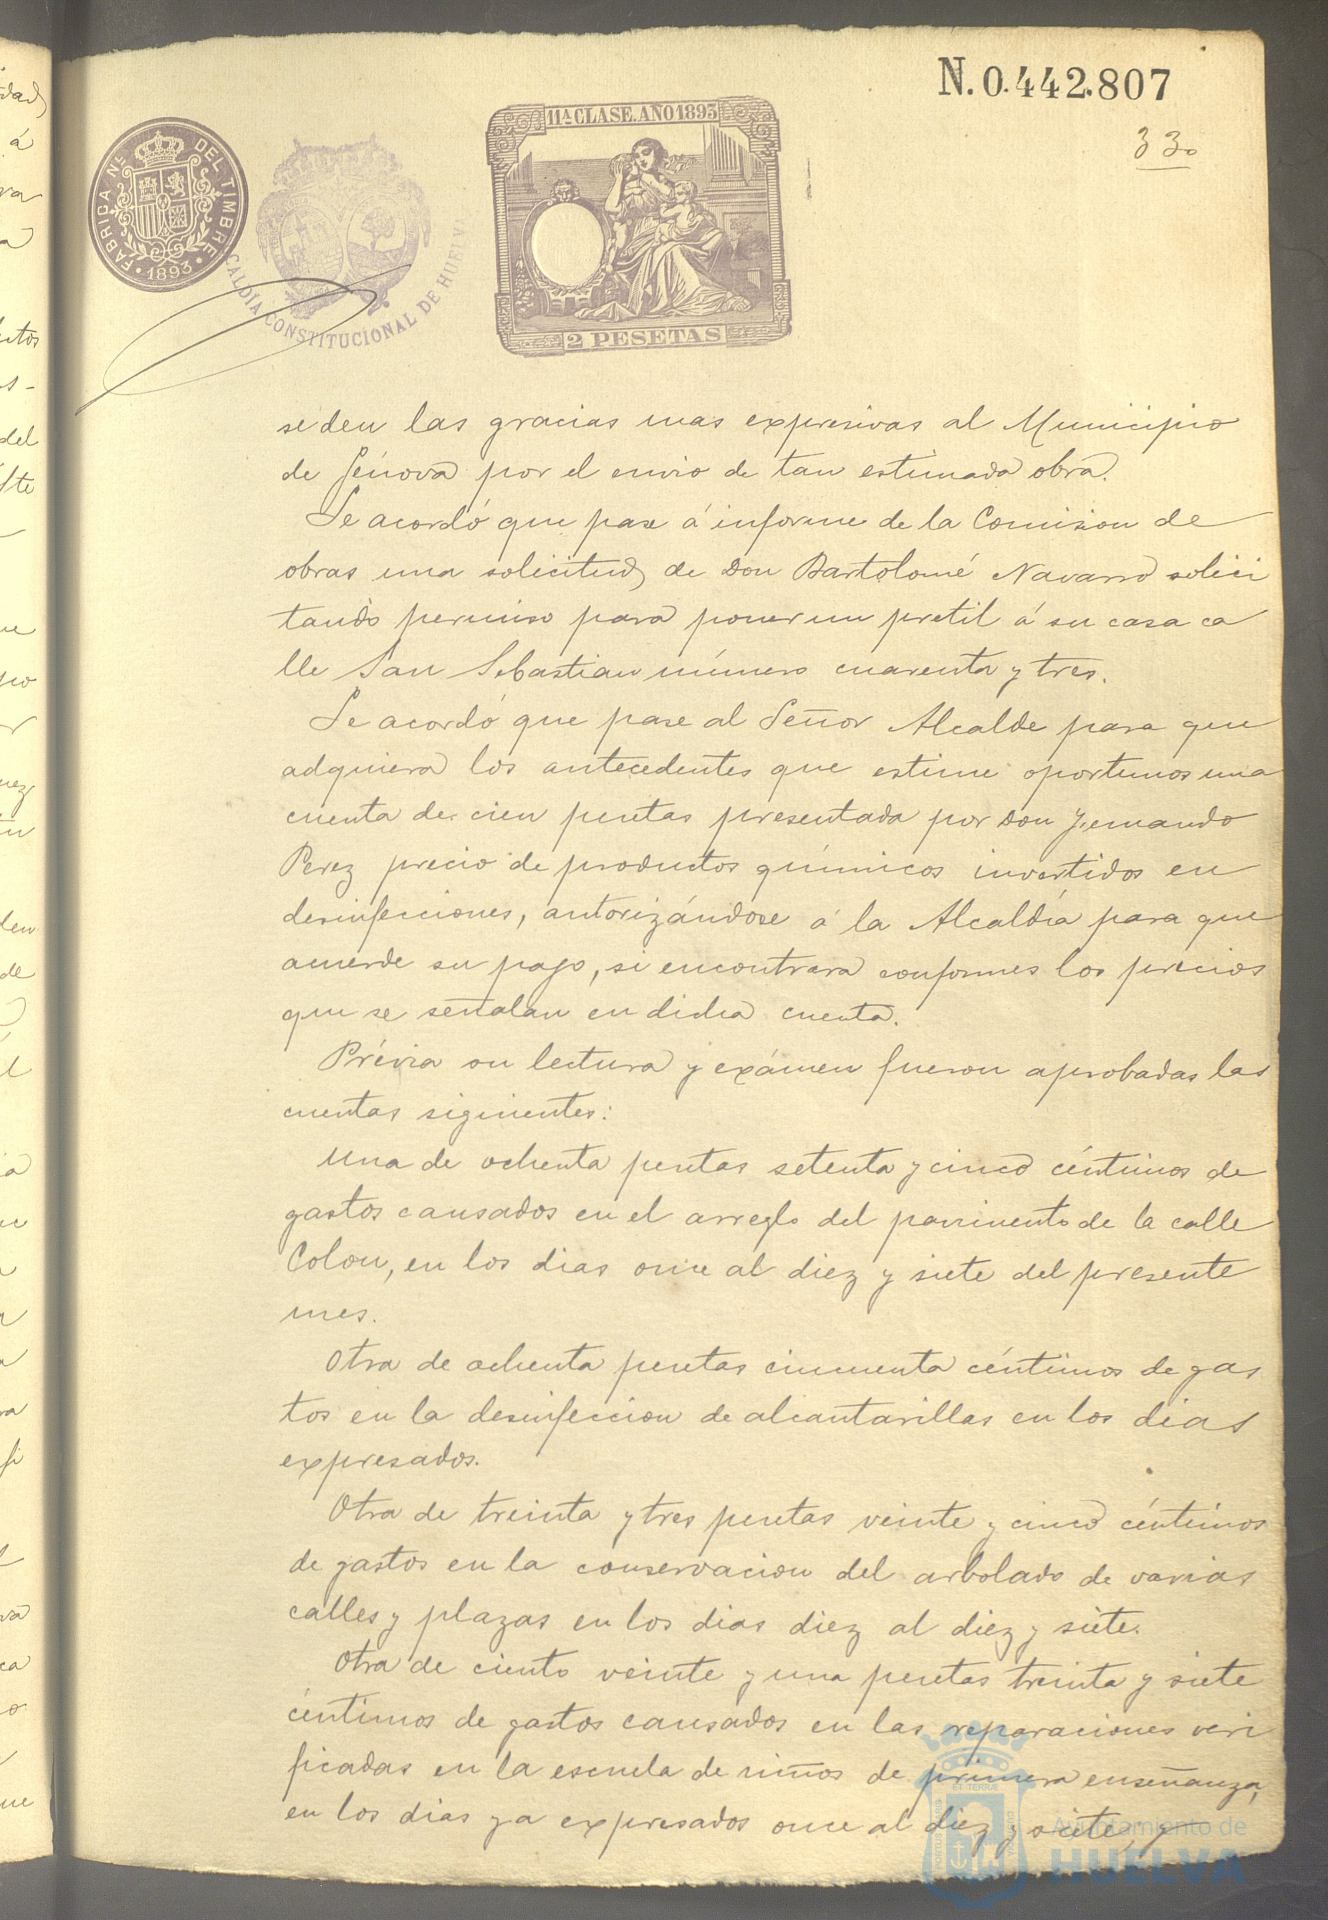 N. 0.442.807
33.
11ª CLASE. AÑO 1893
FABRICA Nˡ DEL TIMBRE
1893
ALCALDÍA CONSTITUCIONAL DE HUELVA
2 PESETAS
se den las gracias mas expresivas al Municipio
de Génova por el envio de tan estimada obra.
Se acordó que pase á informe de la Comision de
obras una solicitud de Don Bartolomé Navarro solici
tando permiso para poner un pretil á su casa ca
lle San Sebastian número cuarenta y tres.
Se acordó que pase al Señor Alcalde para que
adquiera los antecedentes que estime oportunos una
cuenta de cien pesetas presentada por Don Fernando
Perez precio de productos químicos invertidos en
desinfecciones, autorizándose á la Alcaldía para que
acuerde su pago, si encontrara conformes los precios
que se señalan en dicha cuenta.
Prévia su lectura y exámen fueron aprobadas las
cuentas siguientes:
Una de ochenta pesetas setenta y cinco céntimos de
gastos causados en el arreglo del pavimento de la calle
Colon, en los dias once al diez y siete del presente
mes.
Otra de ochenta pesetas cincuenta céntimos de gas
tos en la desinfeccion de alcantarillas en los dias
expresados.
Otra de treinta y tres pesetas veinte y cinco céntimos
de gastos en la conservacion del arbolado de varias
calles y plazas en los dias diez al diez y siete.
Otra de ciento veinte y una pesetas treinta y siete
céntimos de gastos causados en las reparaciones veri
ficadas en la escuela de niños de primera enseñanza,
en los dias ya expresados once al diez y siete, y
Ayuntamiento de
HUELVA